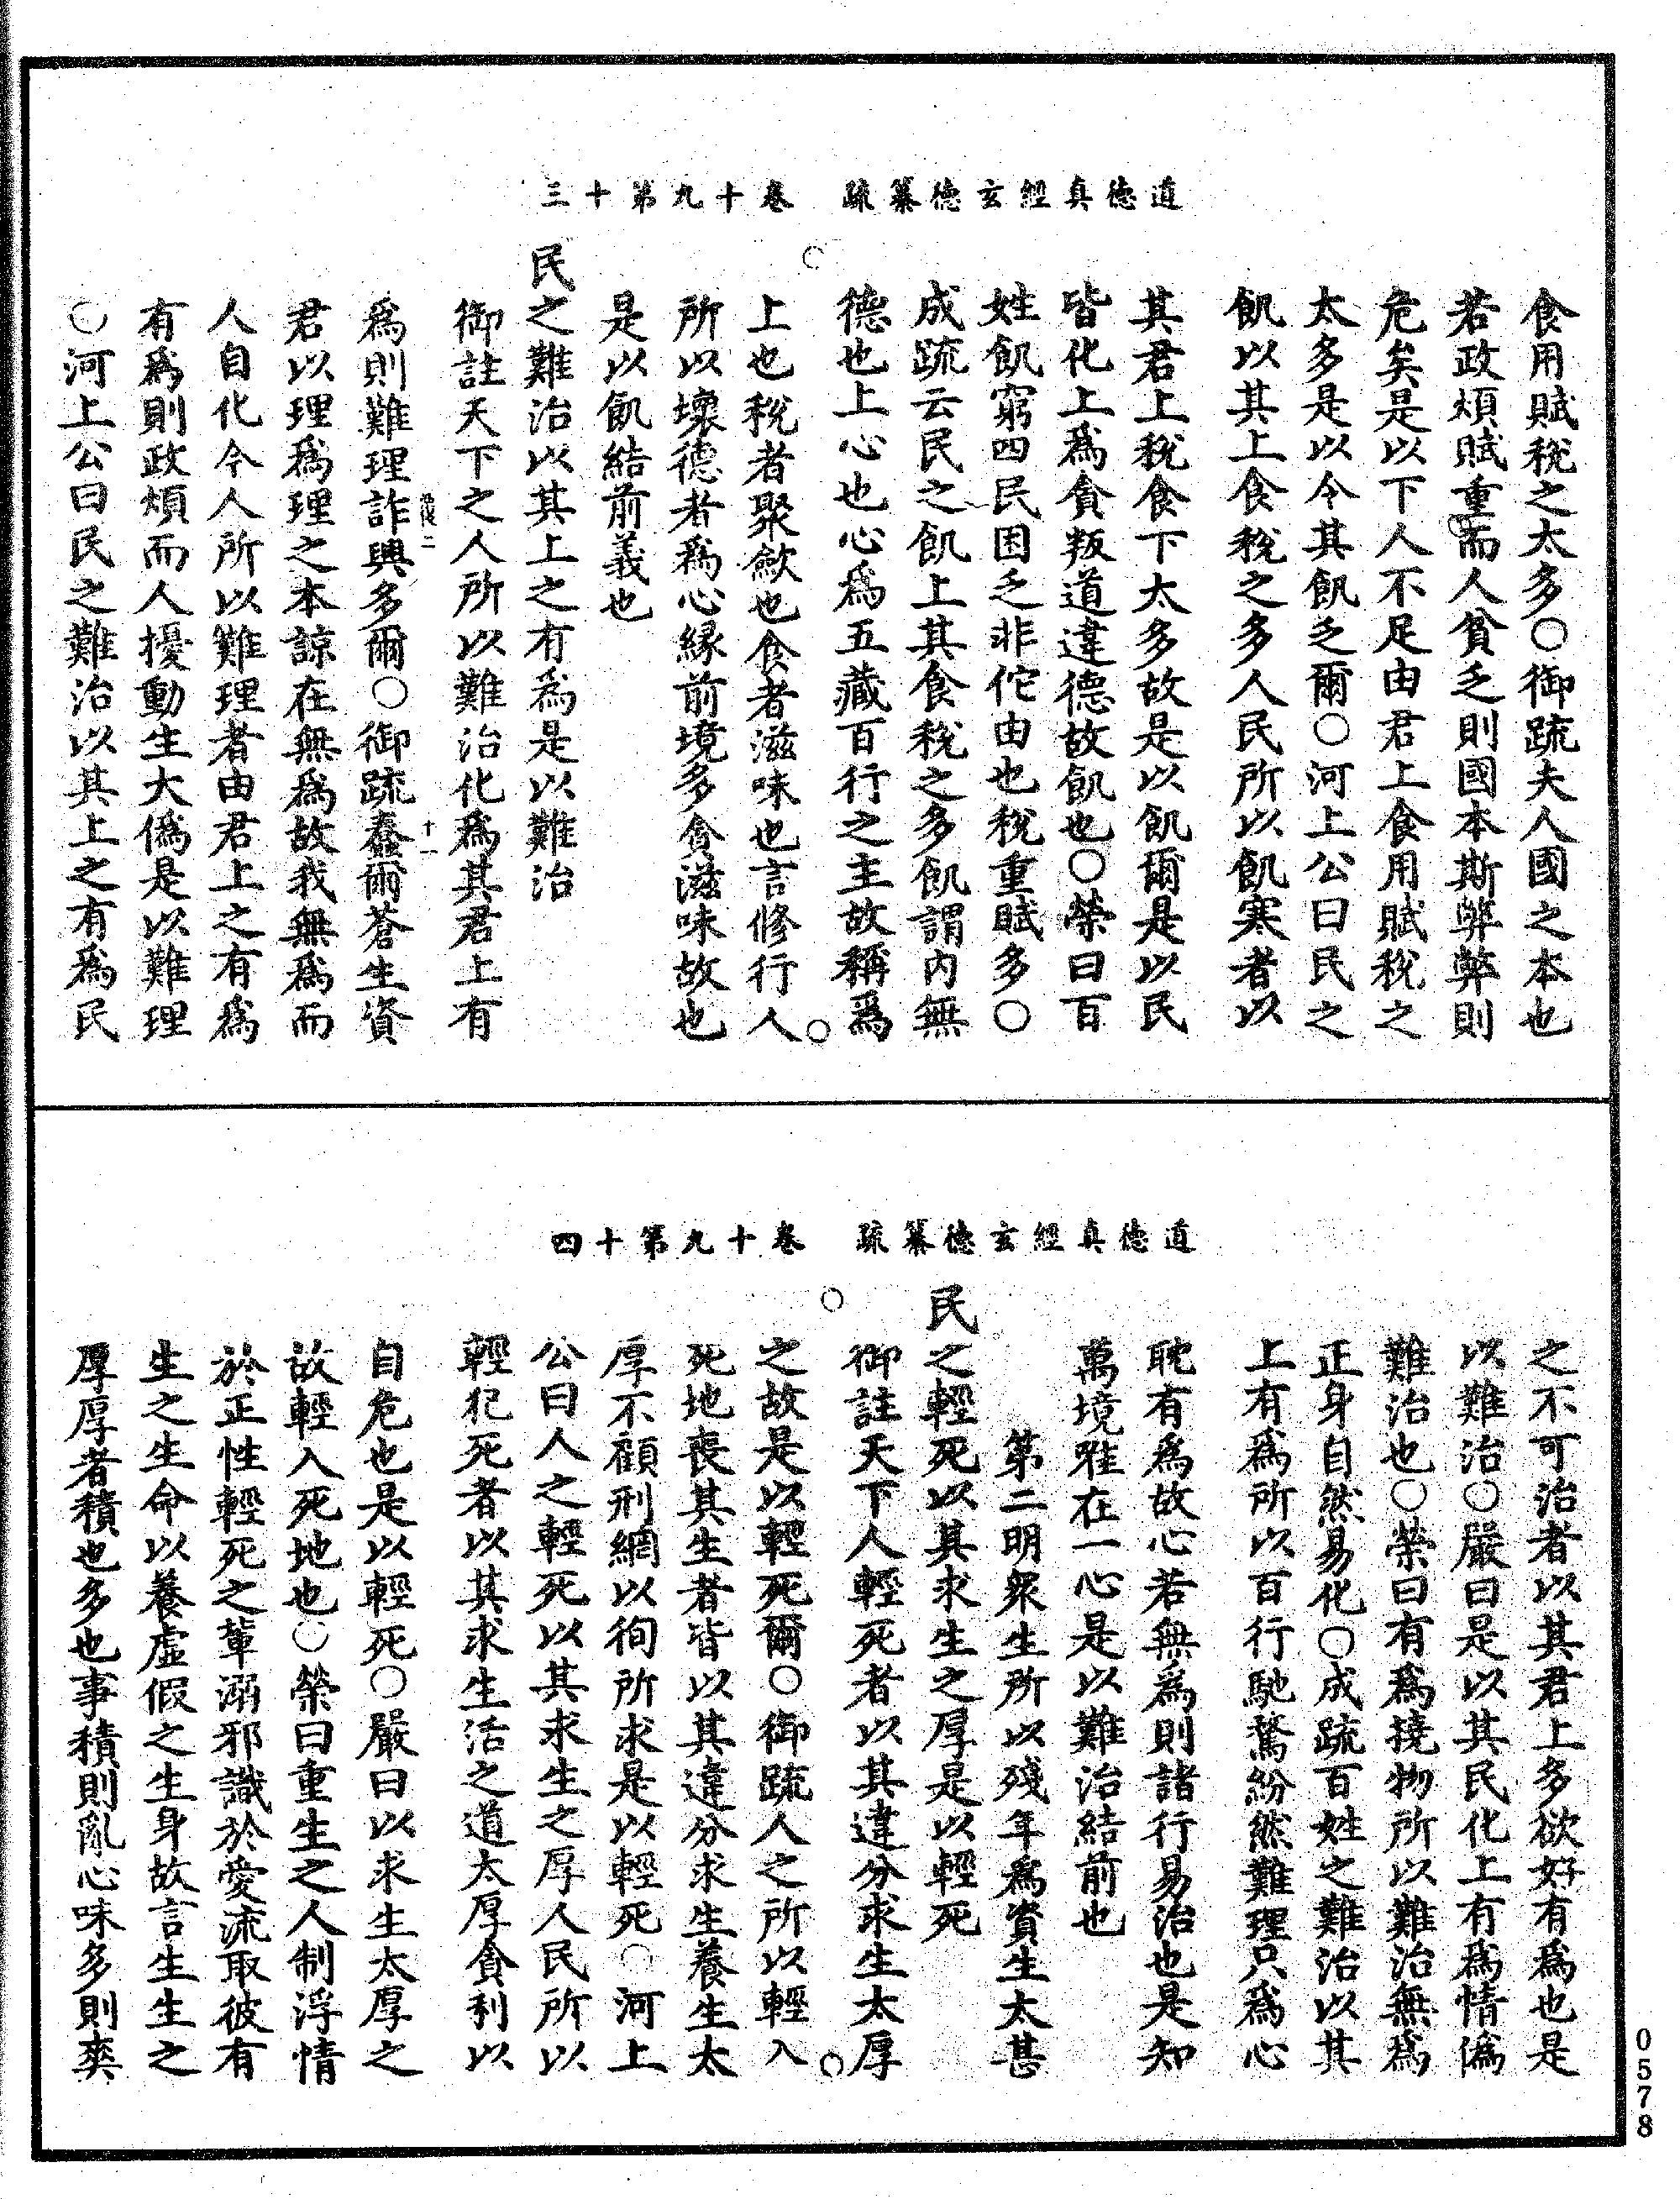 道德真經玄德纂疏　卷十九第十三
食用賦稅之太多○御疏夫人國之本也
若政煩賦重而人貧乏則國本斯弊弊則
危矣是以下人不足由君上食用賦稅之
太多是以令其飢乏爾○河上公曰民之
飢以其上食稅之多人民所以飢寒者以
其君上稅食下太多故是以飢爾是以民
皆化上爲貪叛道違德故飢也○榮曰百
姓飢窮四民困乏非佗由也稅重賦多○
成疏云民之飢上其食稅之多飢謂內無
德也上心也心爲五藏百行之主故稱爲
上也稅者聚歛也食者滋味也言修行人
所以壞德者爲心緣前境多貪滋味故也
是以飢結前義也
民之難治以其上之有爲是以難治
御註天下之人所以難治化爲其君上有
爲則難理詐興多爾○御疏蠢爾蒼生資
君以理爲理之本諒在無爲故我無爲而
人自化今人所以難理者由君上之有爲
有爲則政煩而人擾動生大僞是以難理
○河上公曰民之難治以其上之有爲民
道德真經玄德纂疏　卷十九第十四
之不可治者以其君上多欲好有爲也是
以難治○嚴曰是以其民化上有爲情僞
難治也○榮曰有爲撓物所以難治無爲
正身自然易化○成疏百姓之難治以其
上有爲所以百行馳騖紛然難理只爲心
耽有爲故心若無爲則諸行易治也是知
萬境唯在一心是以難治結前也
第二明衆生所以殘年爲資生太甚
民之輕死以其求生之厚是以輕死
御註天下人輕死者以其違分求生太厚
之故是以輕死爾○御疏人之所以輕入
死地喪其生者皆以其違分求生養生太
厚不顧刑網以徇所求是以輕死○河上
公曰人之輕死以其求生之厚人民所以
輕犯死者以其求生活之道太厚貪利以
自危也是以輕死○嚴曰以求生太厚之
故輕入死地也○榮曰重生之人制浮情
於正性輕死之輩溺邪識於愛流取彼有
生之生命以養虛假之生身故言生生之
厚厚者積也多也事積則亂心味多則爽
0578